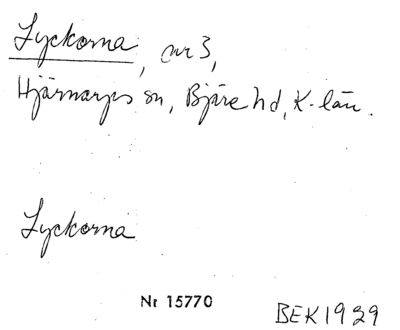 Lyckorna, nr 3,
Hjärnarps sn, Bjäre hd, K-län.
Lyckorna
Nr 15770
BEK 1939